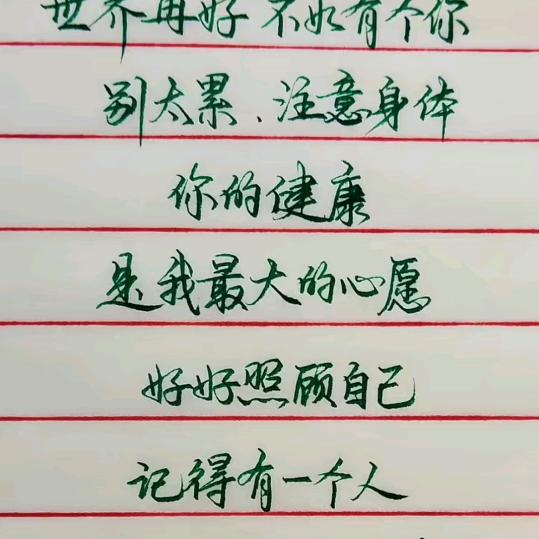 世界再好 不如有个你
别太累、注意身体
你的健康
是我最大的心愿
好好照顾自己
记得有一个人